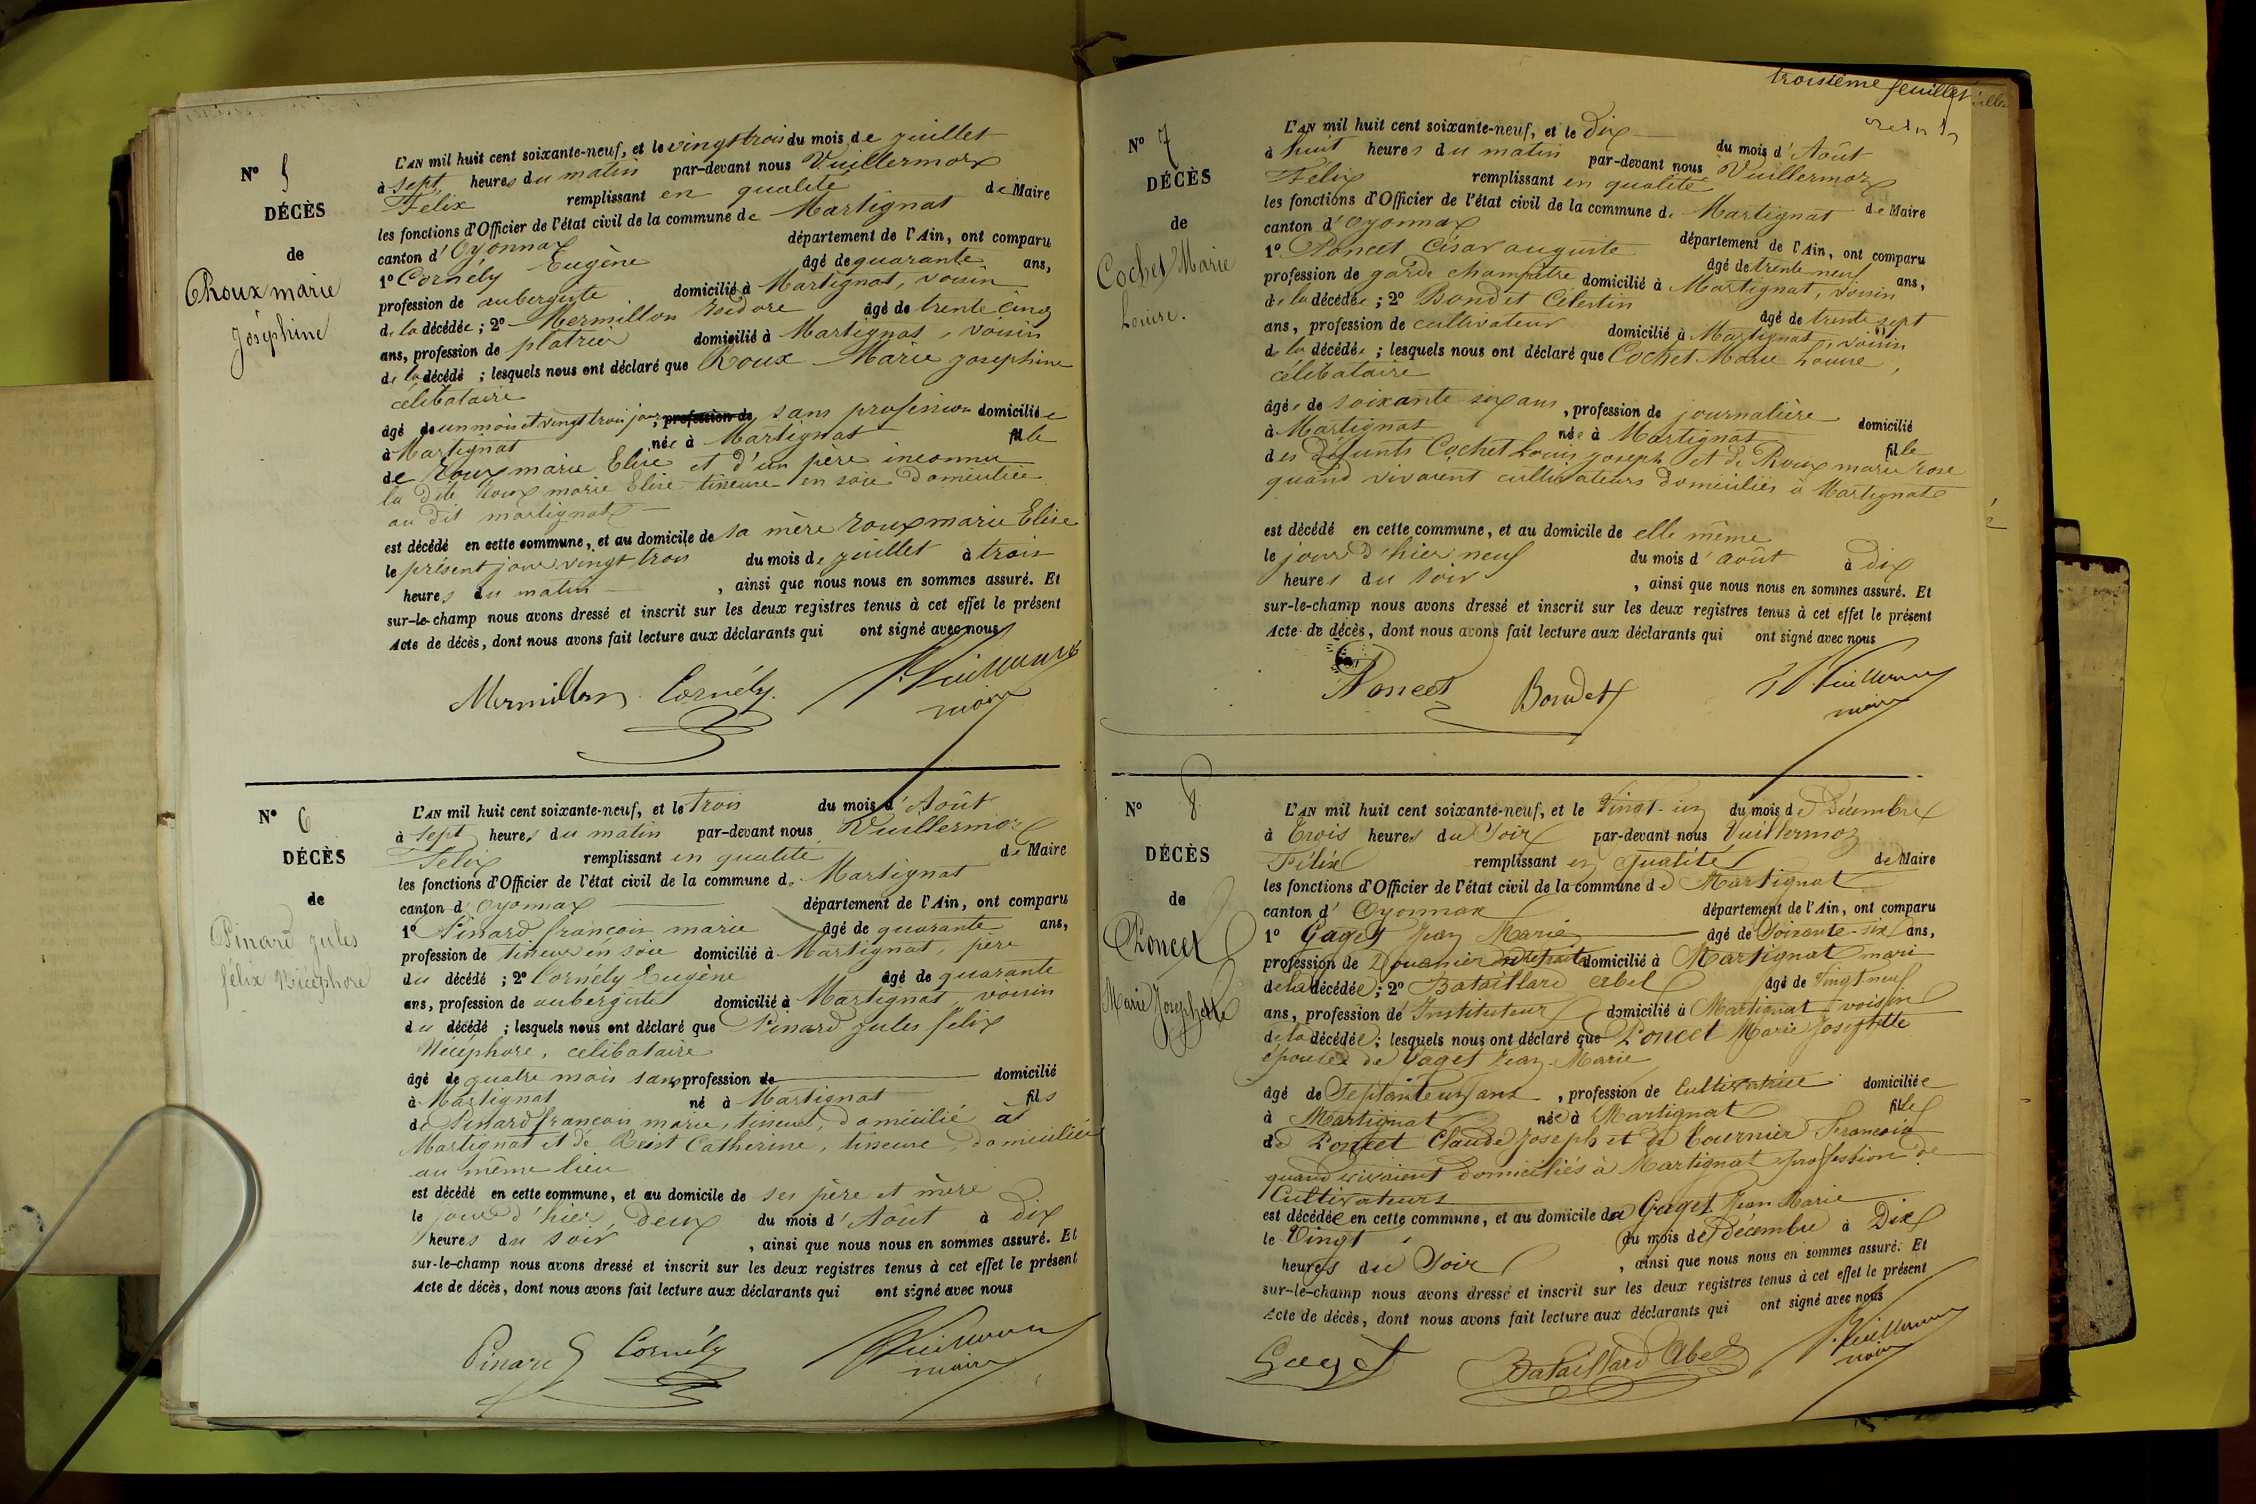 N° 5
DÉCÈS
de
Roux marie
Joséphine
L'AN mil huit cent soixante-neuf, et le vingt trois du mois de juillet
à sept heures du matin par-devant nous Vuillermoz
Félix remplissant en qualité de Maire
les fonctions d'Officier de l'état civil de la commune de Martignat
canton d'Oyonnax département de l'Ain, ont comparu
1° Cornély Eugène âgé de quarante ans,
profession de aubergiste domicilié à Martignat, voisin
de la décédée ; 2° Mermillon Isidore âgé de trente cinq
ans, profession de platrier domicilié à Martignat, voisin
de la décédé ; lesquels nous ont déclaré que Roux Marie Josephine
célibataire
âgé de un mois et vingt trois jours, profession de sans profession domiciliée
à Martignat née à Martignat fille
de Roux marie Elise et d'un père inconnu
la dite Roux marie Elise tisseuse en soie domiciliée
au dit martignat
est décédé en cette commune, et au domicile de sa mère Roux marie Elise
le présent jour vingt trois du mois de juillet à trois
heures du matin , ainsi que nous nous en sommes assuré. Et
sur-le-champ nous avons dressé et inscrit sur les deux registres tenus à cet effet le présent
Acte de décès, dont nous avons fait lecture aux déclarants qui ont signé avec nous
Mermillon Cornély Vuillermoz
maire
N° 6
DÉCÈS
de
Pinard jules
félix Nicéphore
L'AN mil huit cent soixante-neuf, et le trois du mois d'Août
à sept heures du matin par-devant nous Vuillermoz
Félix remplissant en qualité de Maire
les fonctions d'Officier de l'état civil de la commune de Martignat
canton d'Oyonnax département de l'Ain, ont comparu
1° Pinard françois marie âgé de quarante ans,
profession de tisseur en soie domicilié à Martignat, père
du décédé ; 2° Cornély Eugène âgé de quarante
ans, profession de aubergiste domicilié à Martignat, voisin
du décédé ; lesquels nous ont déclaré que Pinard jules félix
Nicéphore, célibataire
âgé de quatre mois sans profession de domicilié
à Martignat né à Martignat fils
de Pinard françois marie, tisseur, domicilié à
Martignat et de Catherine, tisseuse, domiciliée
au même lieu
est décédé en cette commune, et au domicile de ses père et mère
le jour d'hier, deux du mois d'Août à dix
heures du soir , ainsi que nous nous en sommes assuré. Et
sur-le-champ nous avons dressé et inscrit sur les deux registres tenus à cet effet le présent
Acte de décès, dont nous avons fait lecture aux déclarants qui ont signé avec nous
Pinard Cornély Vuillermoz
maire
troisième feuillet
N° 7
DÉCÈS
de
Cochet Marie
Louise.
L'AN mil huit cent soixante-neuf, et le dix du mois d'Août
à huit heures du matin par-devant nous Vuillermoz
Félix remplissant en qualité de Maire
les fonctions d'Officier de l'état civil de la commune de Martignat
canton d'Oyonnax département de l'Ain, ont comparu
1° Poncet César auguste âgé de trente neuf ans,
profession de garde champêtre domicilié à Martignat, voisin
de la décédée ; 2° Bondet Célestin âgé de trente sept
ans, profession de cultivateur domicilié à Martignat, voisin
de la décédée ; lesquels nous ont déclaré que Cochet Marie Louise,
célibataire
âgée de soixante six ans, profession de journalière domicilié
à Martignat née à Martignat fille
des défunts Cochet Louis joseph et de Roux marie rose
quand vivaient cultivateurs domiciliés à Martignat
est décédé en cette commune, et au domicile de elle même
le jour d'hier neuf du mois d'août à dix
heures du soir , ainsi que nous nous en sommes assuré. Et
sur-le-champ nous avons dressé et inscrit sur les deux registres tenus à cet effet le présent
Acte de décès, dont nous avons fait lecture aux déclarants qui ont signé avec nous
Poncet Bondet Vuillermoz
maire
N° 8
DÉCÈS
de
Poncet
Marie Josephette
L'AN mil huit cent soixante-neuf, et le Vingt-un du mois de Décembre
à Trois heures du Soir par-devant nous Vuillermoz
Félix remplissant en qualité de Maire
les fonctions d'Officier de l'état civil de la commune de Martignat
canton d'Oyonnax département de l'Ain, ont comparu
1° Gaget Jean Marie âgé de Soixante-six ans,
profession de Douanier en retraite domicilié à Martignat mari
de la décédée ; 2° Bataillard Abel âgé de Vingt neuf
ans, profession de Instituteur domicilié à Martignat voisin
de la décédée ; lesquels nous ont déclaré que Poncet Marie Josephette
épouse de Gaget Jean-Marie
âgé de Septante un ans , profession de Cultivatrice domiciliée
à Martignat née à Martignat fille
de Poncet Claude Joseph et de Tournier Françoise
quand vivaient domiciliés à Martignat profession de
Cultivateurs
est décédée en cette commune, et au domicile de Gaget Jean Marie
le Vingt du mois de Décembre à Dix
heures du Soir , ainsi que nous nous en sommes assuré. Et
sur-le-champ nous avons dressé et inscrit sur les deux registres tenus à cet effet le présent
Acte de décès, dont nous avons fait lecture aux déclarants qui ont signé avec nous
Gaget Bataillard Abel Vuillermoz
maire